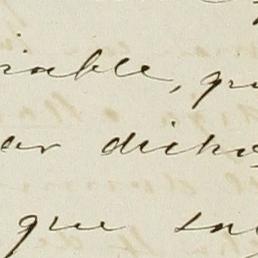 riable, que
ar dicho
que su